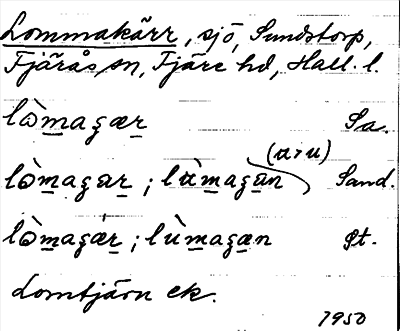 Lommakärr, sjö, Sundstorp,
Fjärås sn, Fjäre hd, Hall. l.
lòmagær Sa.
(a > u)
lòmagar ; lùmagan Sand.
lòmagǽr ; lùmagæn St.
Lomtjärn ek.
1950